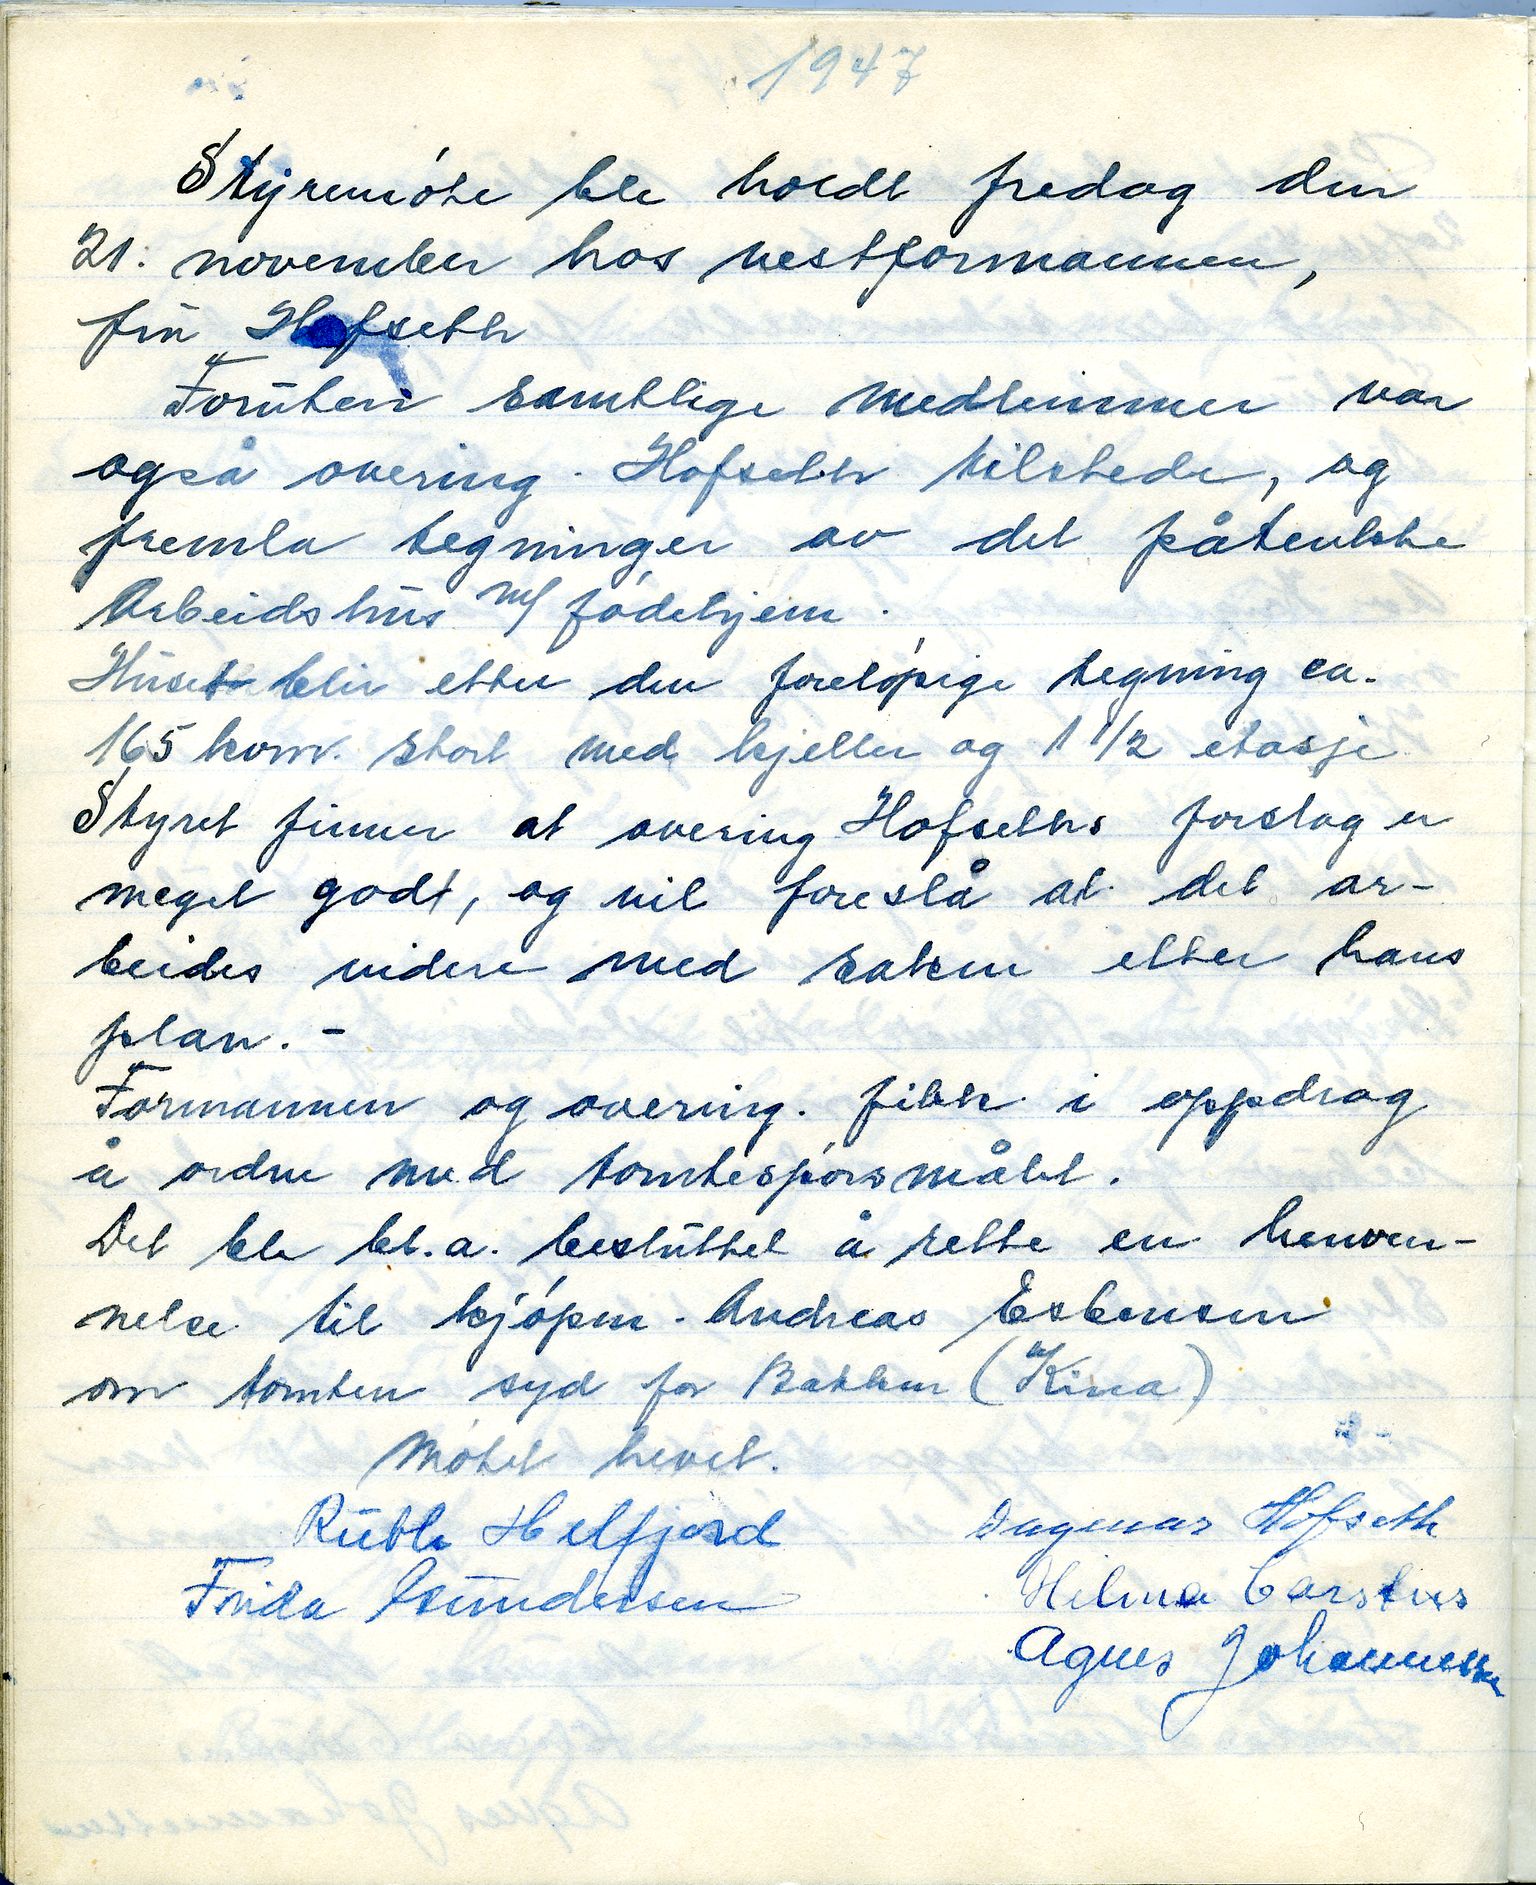 1947
Styremöte ble holdt fredag den
21. november hos nestformannen,
fru Hofseth
Foruten samtlige medlemmer var
også overing. Hofseth tilstede, og
fremla tegninger av det påtenkte
Arbeidshus m/ födehjem.
Huset blir etter den forelöpige tegning ca.
165 kvm. stort med kjeller og 1 1/2 etasje
Styret finner at overing Hofseths forslag er
meget godt, og vil foreslå at det ar-
beides videre med saken etter hans
plan. -
Formannen og overing. fikk i oppdrag
å ordne med tomtespörsmålet.
Det ble bl.a. besluttet å rette en henven-
nelse til kjöpm. Andreas Esbensen
om tomten syd for Bakken ("Kina)
Mötet hevet.
Ruth Helfjord Dagmar Hofseth
Frida Gundersen Hilma Carstens
Agnes Johannessen